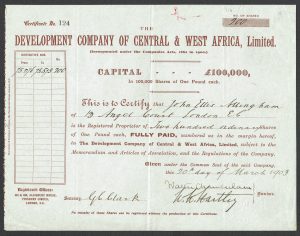 Certificate No. 124
No. OF SHARES
200
THE
DEVELOPMENT COMPANY OF CENTRAL & WEST AFRICA, Limited.
(Incorporated under the Companies Acts, 1862 to 1900.)
CAPITAL £100,000,
In 100,000 Shares of One Pound each.
This is to Certify that John Ellis Attingham
of 13 Angel Court London E.C
is the Registered Proprietor of Two hundred ordinary Shares
of One Pound each, FULLY PAID, numbered as in the margin hereof,
in The Development Company of Central & West Africa, Limited, subject to the
Memorandum and Articles of Association, and the Regulations of the Company.
Given under the Common Seal of the said Company,
this 20th day of March 1903
Secretary G.C. Clark
W. R. Hartley
Registered Offices:
LONDON, E.C.
No transfer of these Shares can be registered without the production of this Certificate.